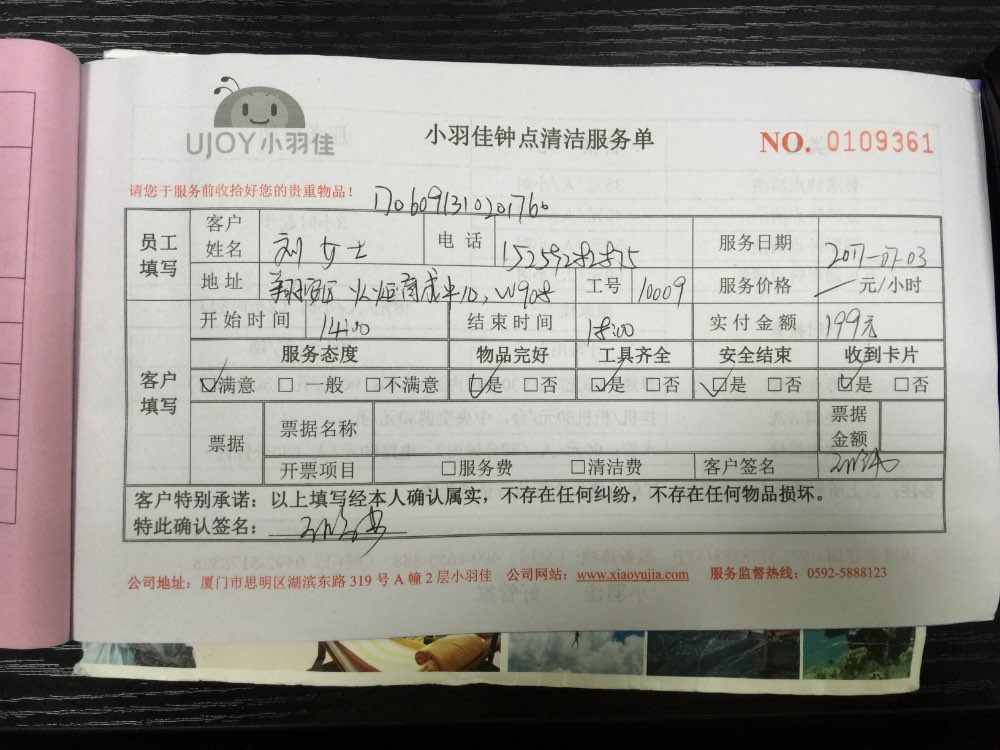 UJOY小羽佳
小羽佳钟点清洁服务单
NO. 0109361
请您于服务前收拾好您的贵重物品！
170609131020176
员工填写
客户姓名 刘女士 电话 15259282875 服务日期 2017-07-03
地址 W908 工号 10009 服务价格 一 元/小时
客户填写
开始时间 14:00 结束时间 18:00 实付金额 199元
服务态度 物品完好 工具齐全 安全结束 收到卡片
☑满意 □一般 □不满意 ☑是 □否 ☑是 □否 ☑是 □否 ☑是 □否
票据 票据名称 票据金额
开票项目 □服务费 □清洁费 客户签名
客户特别承诺：以上填写经本人确认属实，不存在任何纠纷，不存在任何物品损坏。
特此确认签名：
公司地址：厦门市思明区湖滨东路 319 号 A 幢 2 层小羽佳 公司网站：www.xiaoyujia.com 服务监督热线：0592-5888123